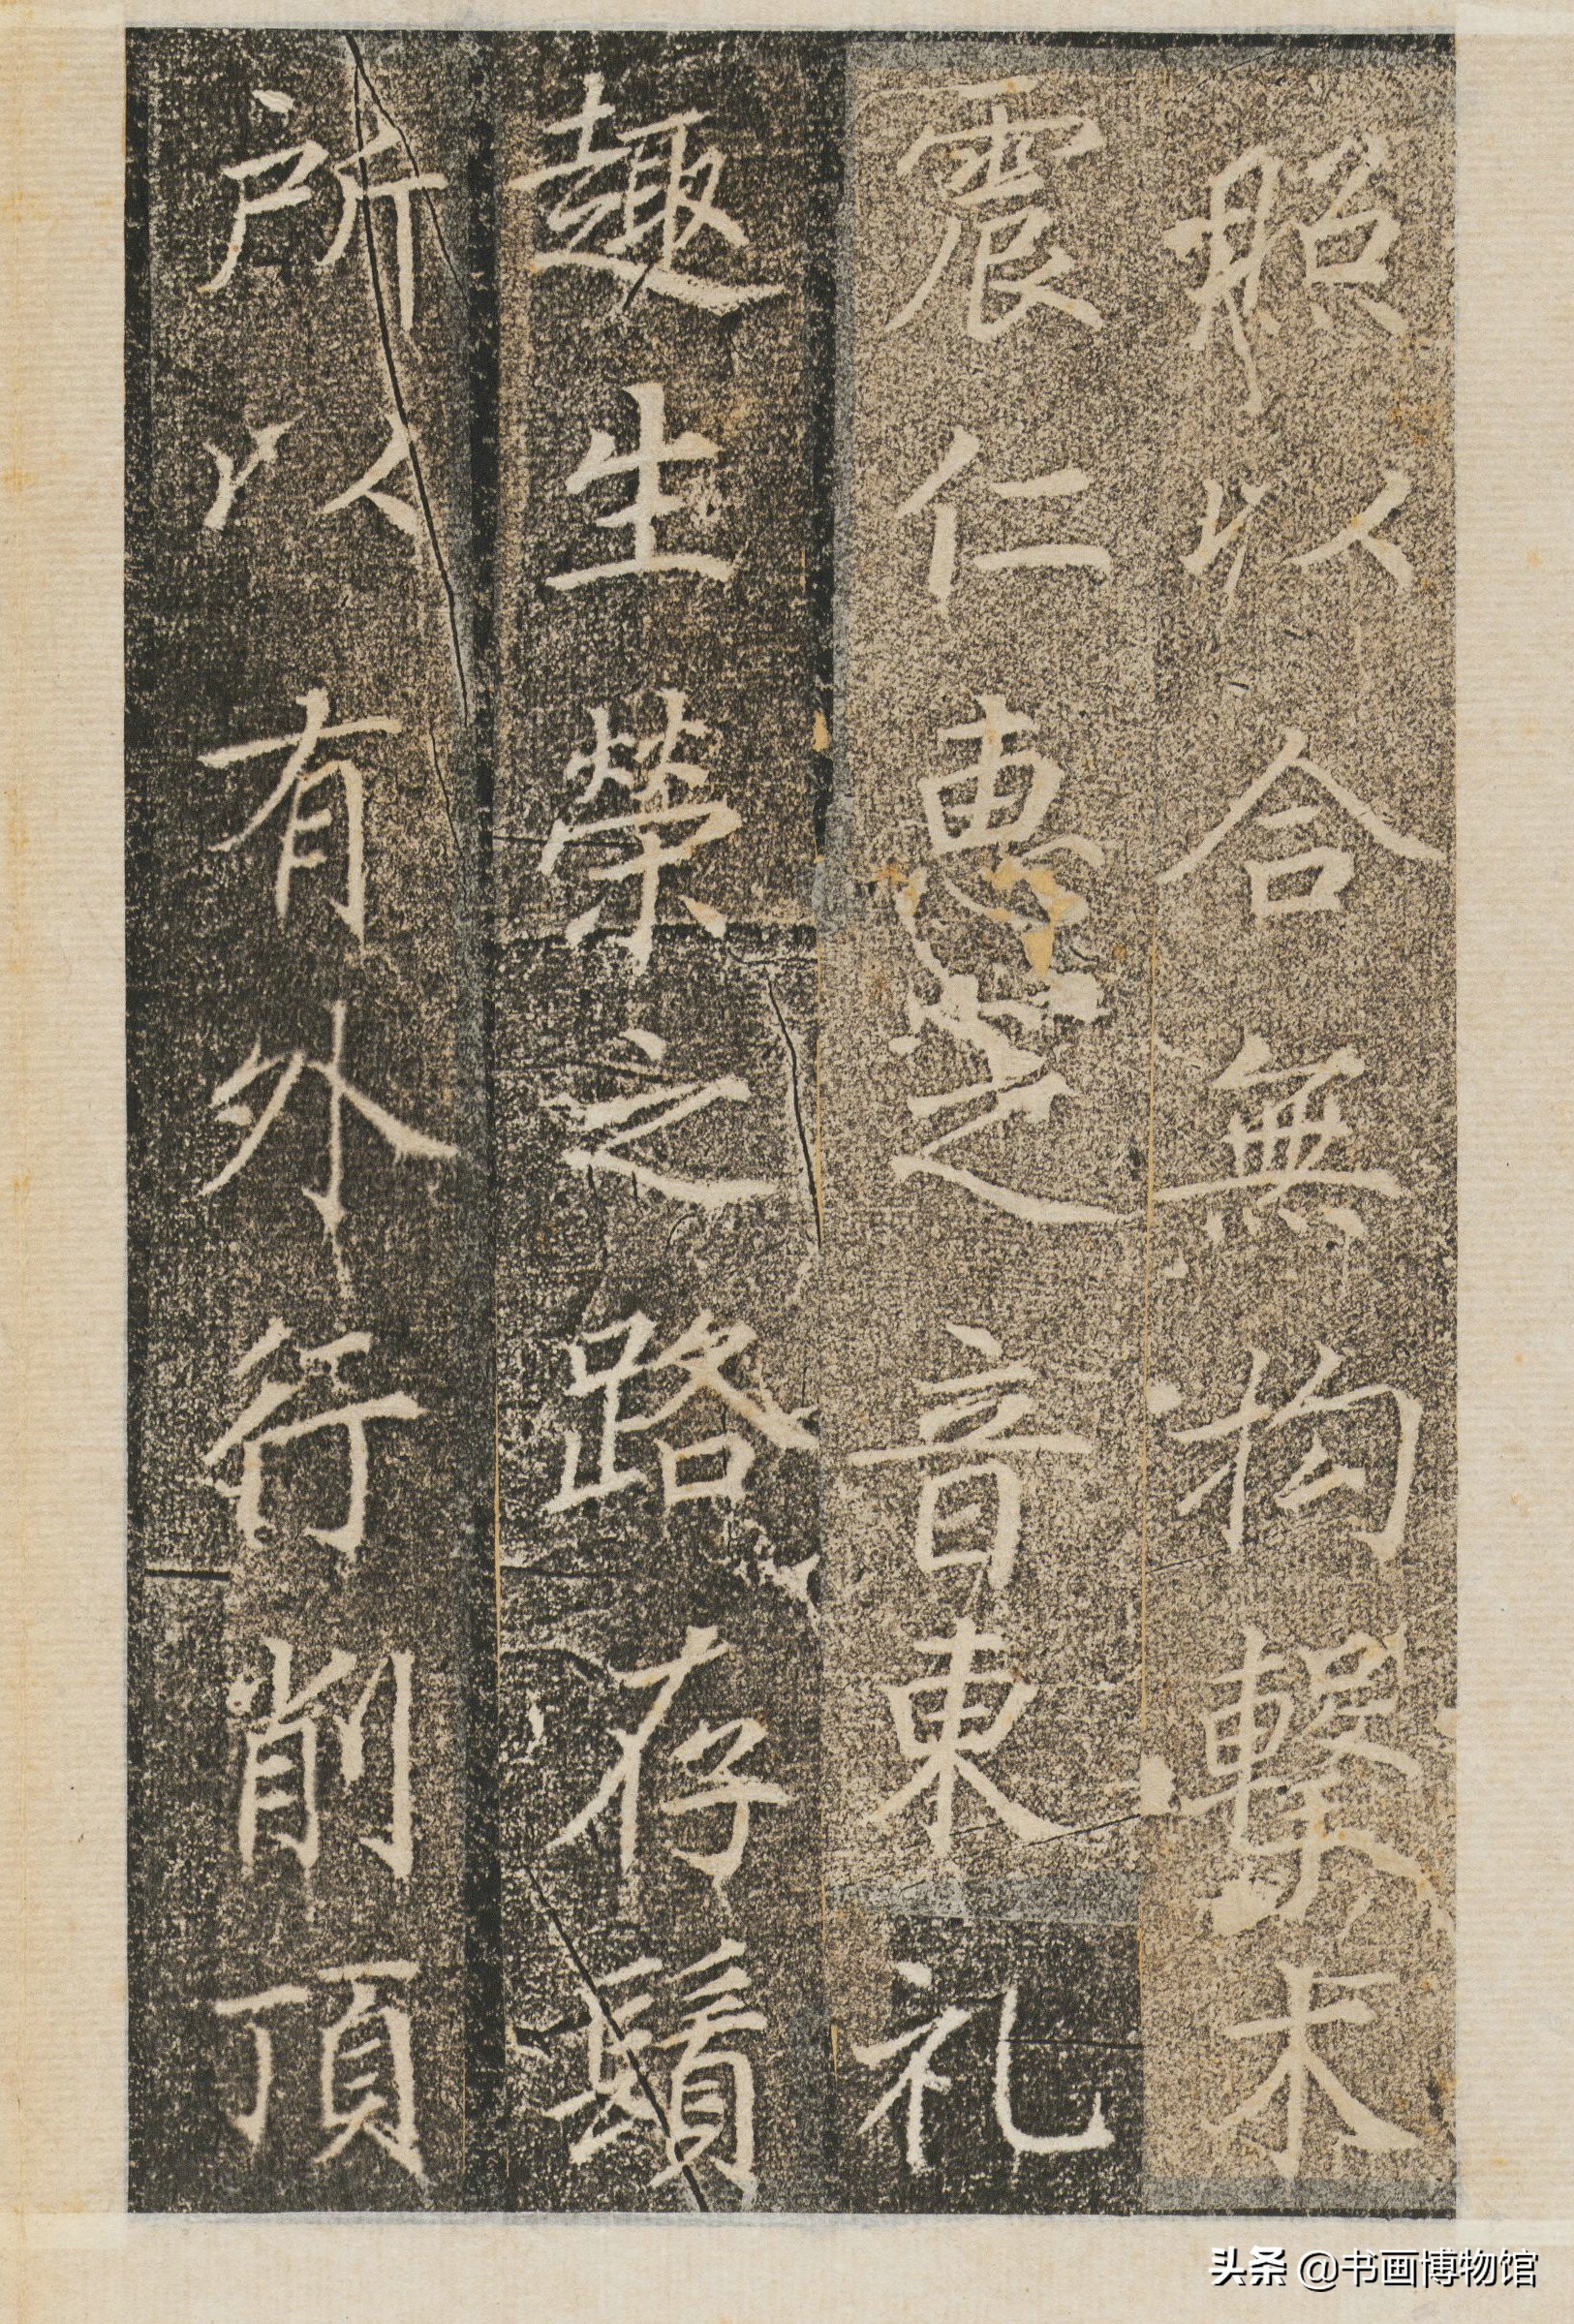 照以合無拘繫未
震仁惠之音東礼
趣生榮之路存鬚
所以有外行削頂
头条 @书画博物馆